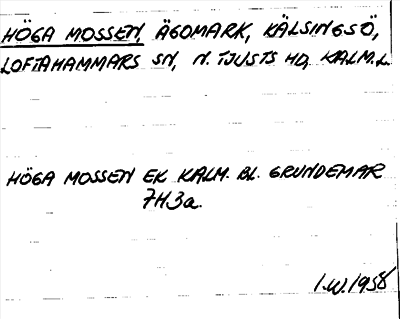 HÖGA MOSSEN, ÄGOMARK, KÄLSINGSÖ,
LOFTAHAMMARS SN, N. TJUSTS HD, KALM. L.
HÖGA MOSSEN EK KALM. BL. GRUNDEMAR
7H3a.
I.W. 1958